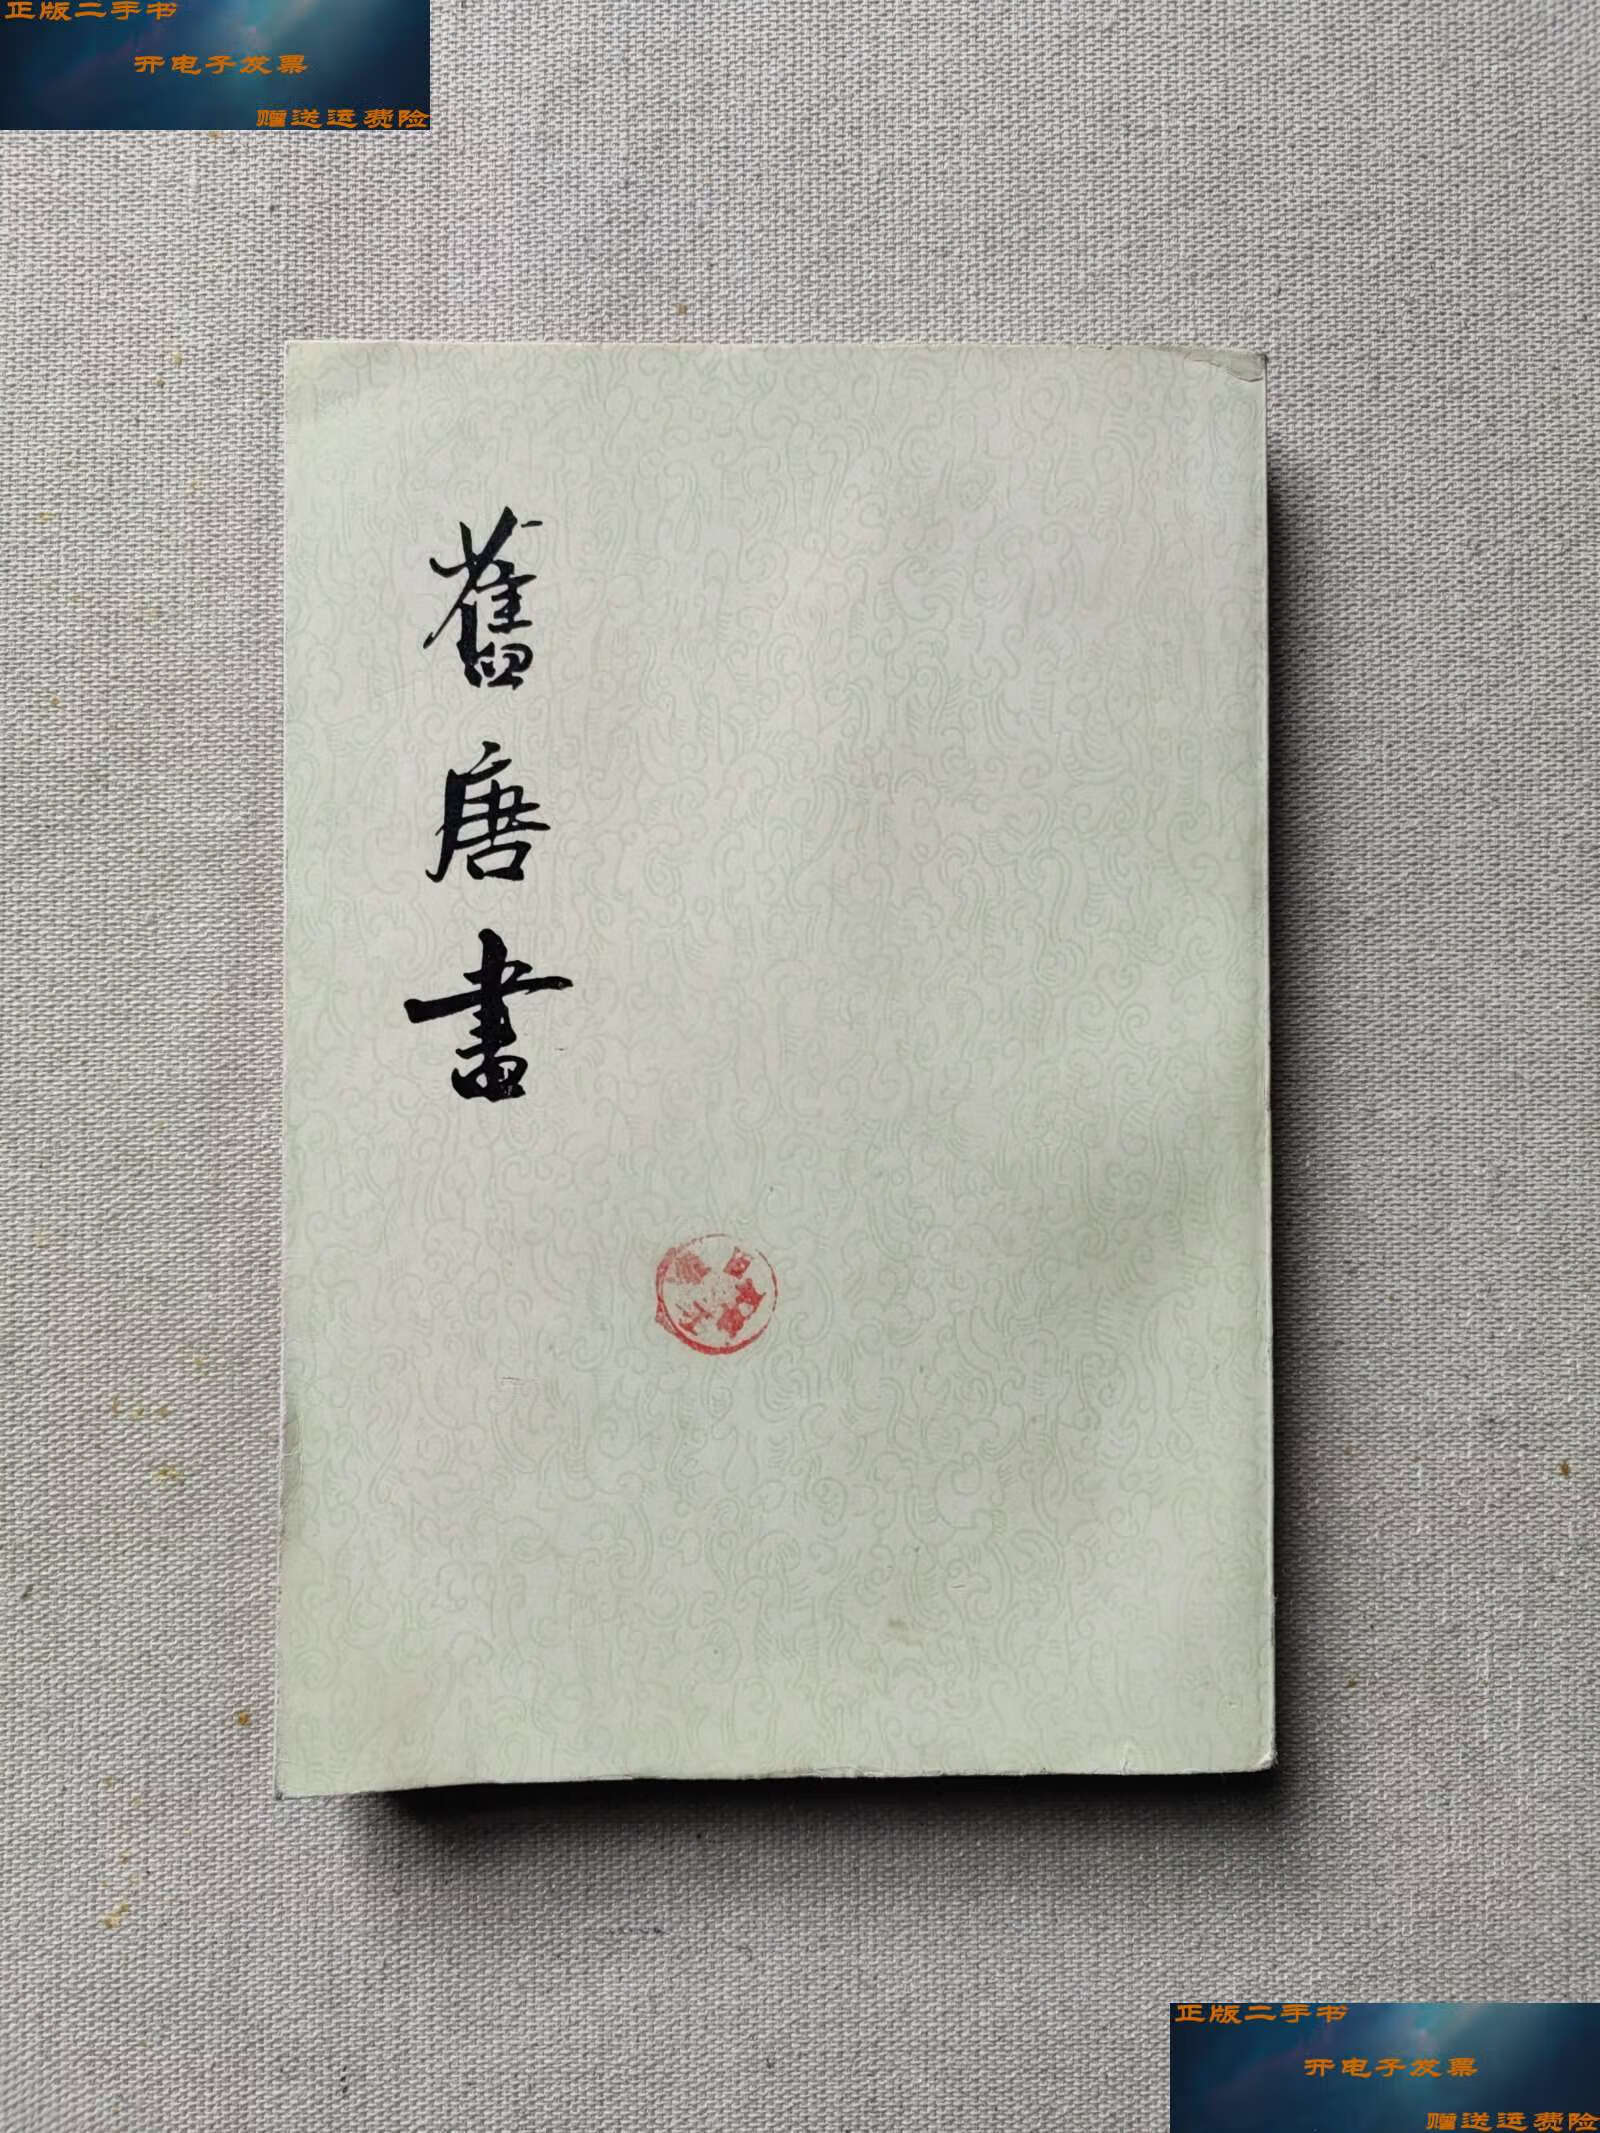 正版二手书
开电子发票
赠送运费险
舊唐書
正版二手书
开电子发票
赠送运费险